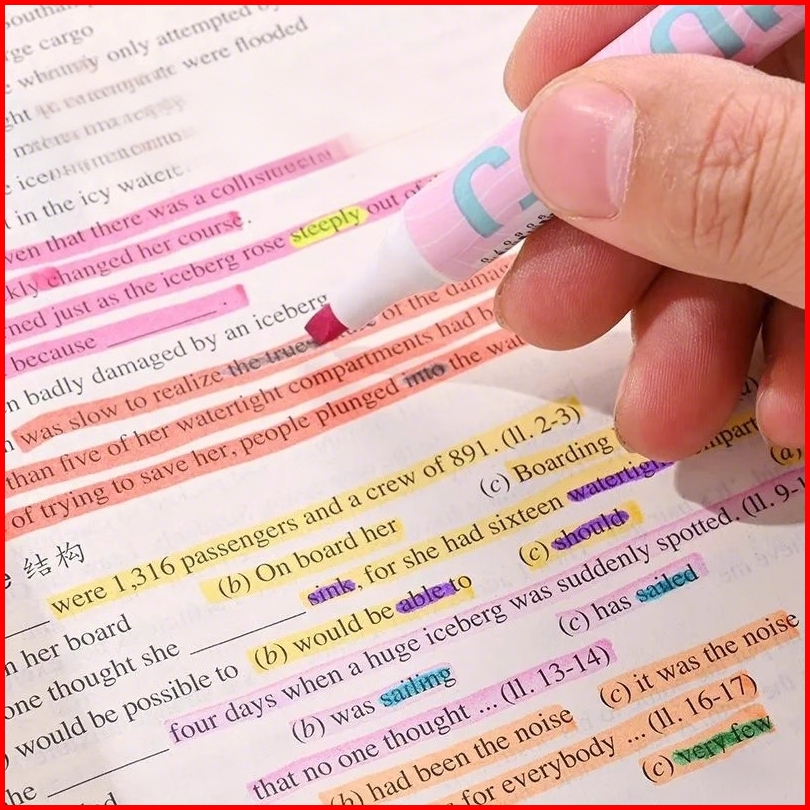 rge cargo
only attempted by
were flooded
ght
in the icy
ven that there was a
kly changed her course.
ned just as the iceberg rose steeply out of
because ________.
n badly damaged by an iceberg
was slow to realize the of the
than five of her watertight compartments had
of trying to save her, people plunged into the
结构
were 1,316 passengers and a crew of 891. (ll. 2-3)
(b) On board her (c) Boarding
sink, for she had sixteen watertight
her board
one thought she ________ (b) would be able to (c) should
would be possible to
four days when a huge iceberg was suddenly spotted. (ll. 9-1
he ________ (b) was sailing (c) has sailed
that no one thought ... (ll. 13-14)
(b) had been the noise (c) it was the noise
for everybody ... (ll. 16-17)
(c) very few